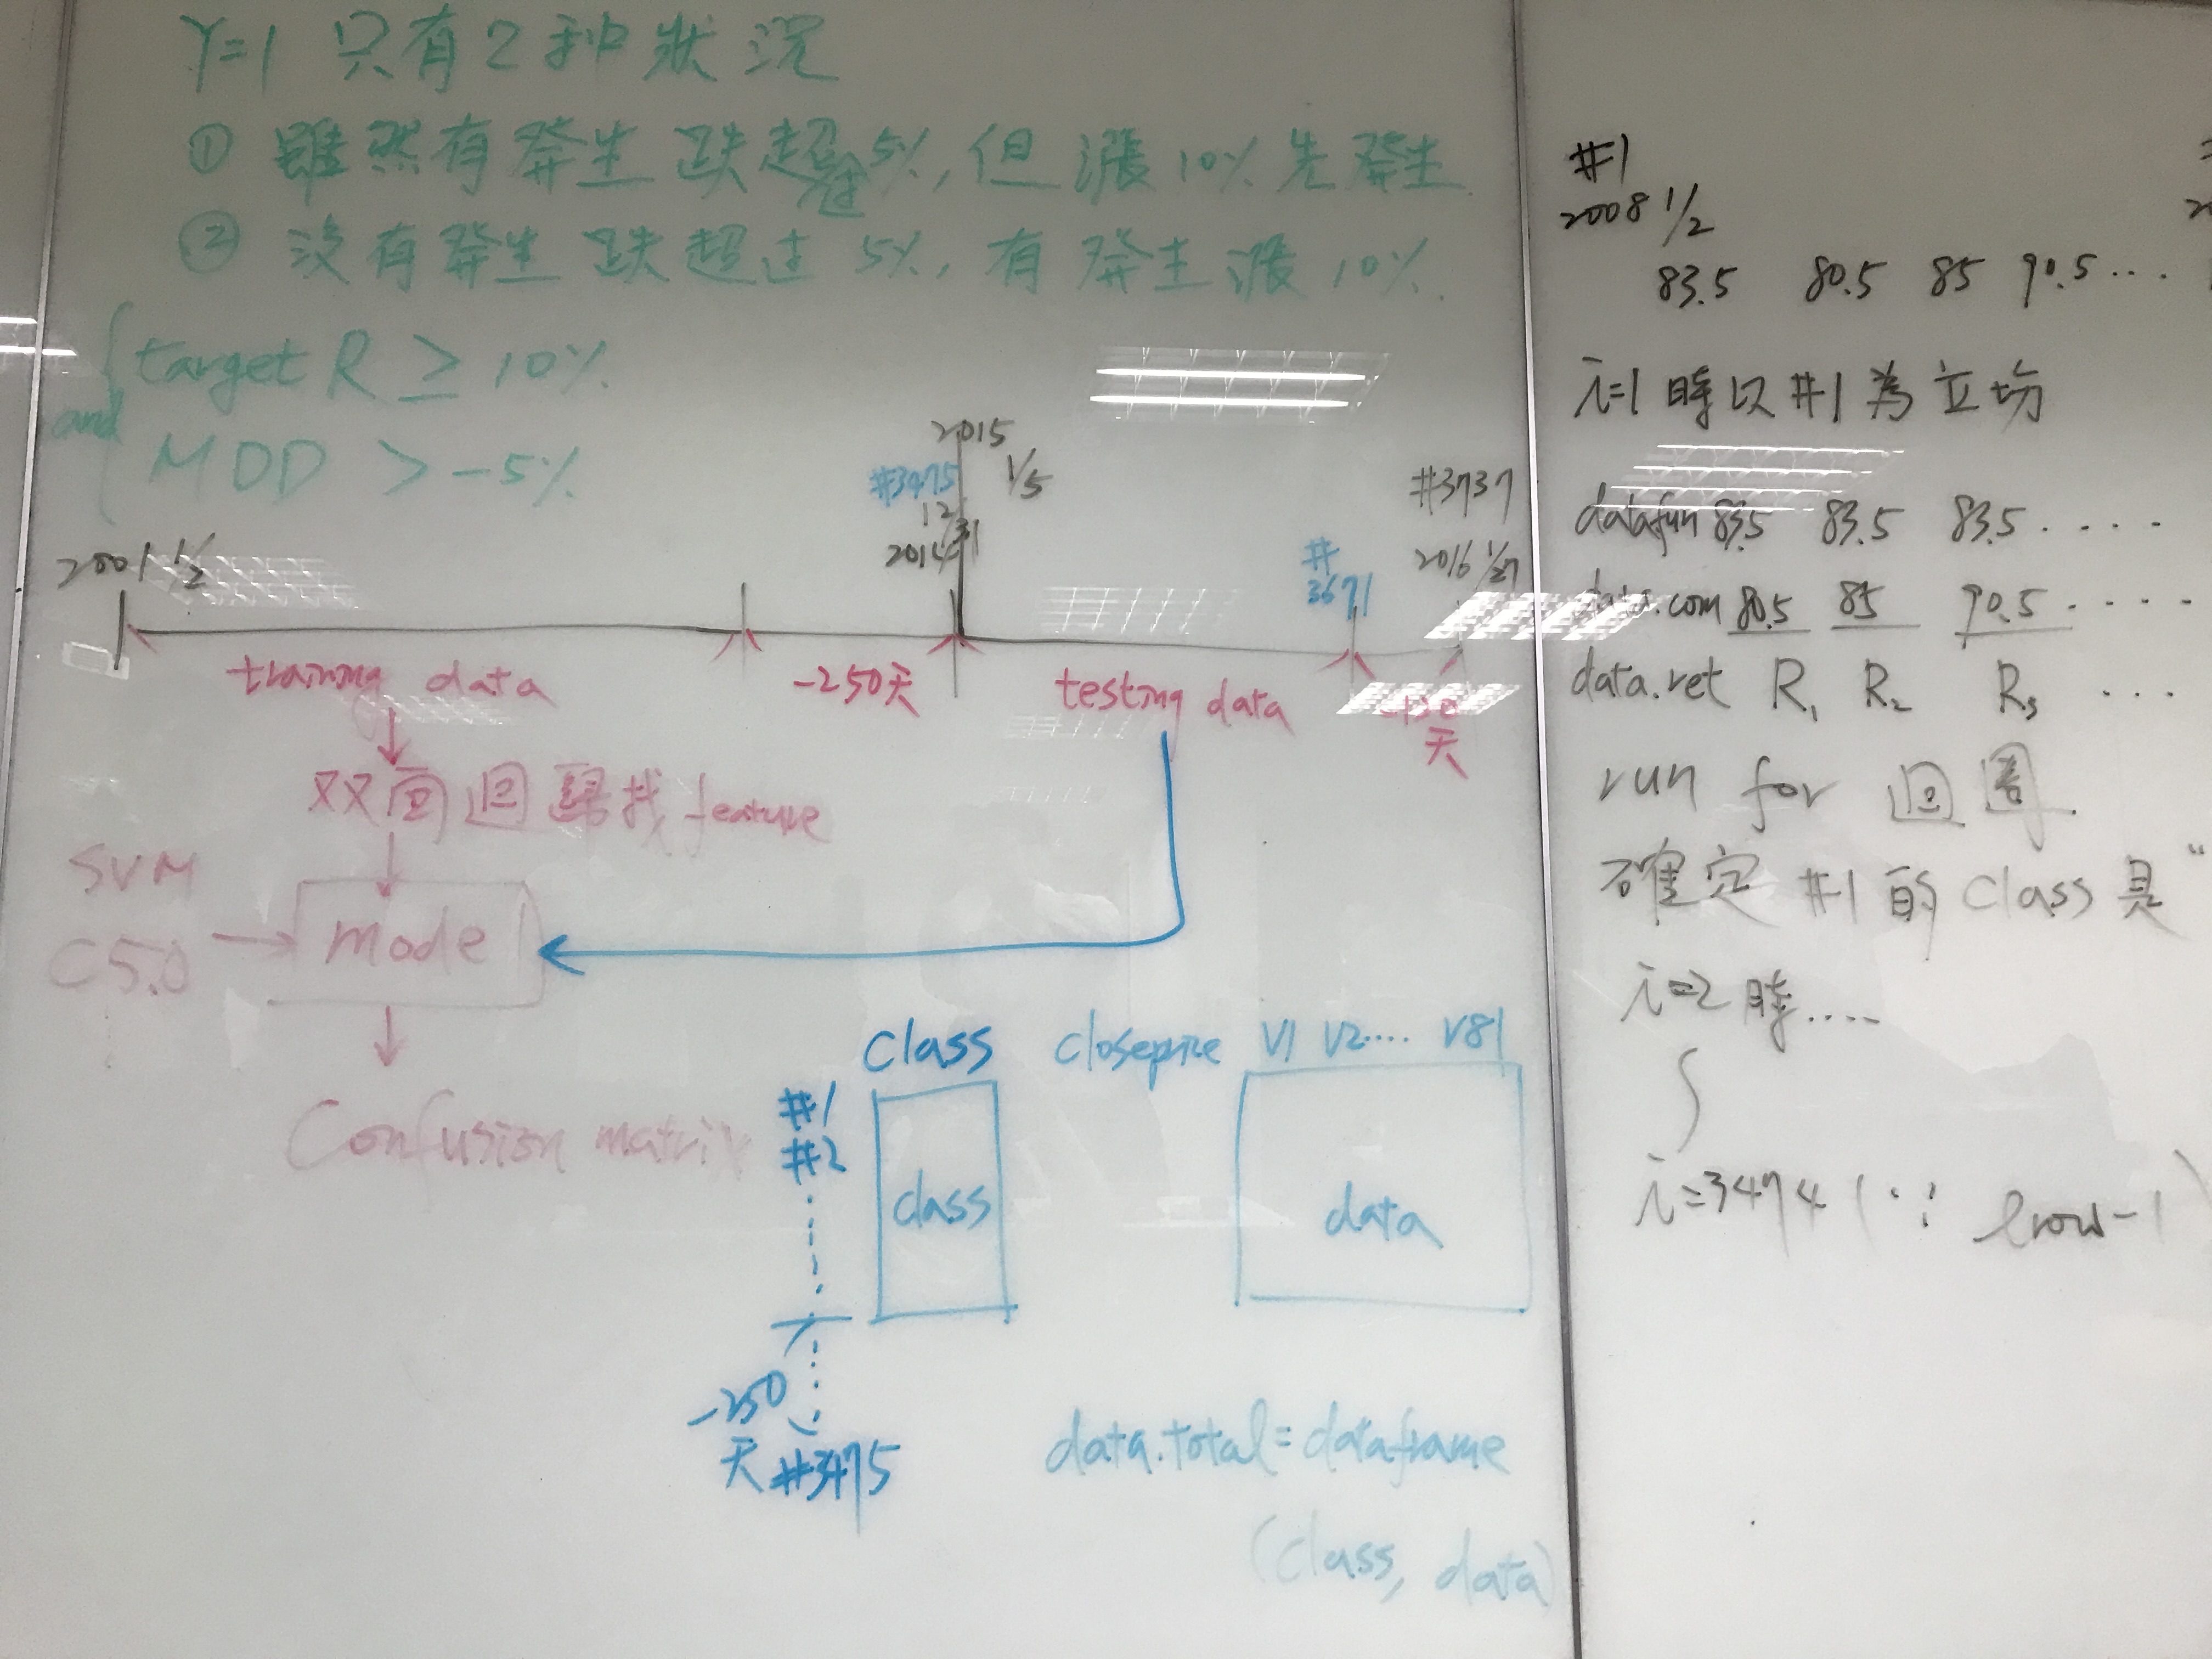 Y=1 只有2种狀況
① 雖然有發生跌超过5%,但漲10%先發生
② 沒有發生跌超过5%,有發生漲10%.
and { target R ≥ 10%
MDD > -5%
2015
1/5
#3475
12/31
2014
#3737
2016 1/27
#
3671
2001 1/2
training data
-250天
testing data
天
双向回歸找feature
SVM
C5.0
model
Confusion matrix
Class closeprice V1 V2.... V81
#1
#2
class
data
-250
天 #3475
data.total = dataframe
(class, data)
#1
2008 1/2
83.5 80.5 85 90.5 ...
i=1 時以 #1 為立場
datafun 83.5 83.5 83.5 ....
data.com 80.5 85 90.5 ....
data.ret R1 R2 R3 ...
run for 回圈
確定 #1 的 class 是 "
i=2 時....
i=3474 (∵ lrow-1)